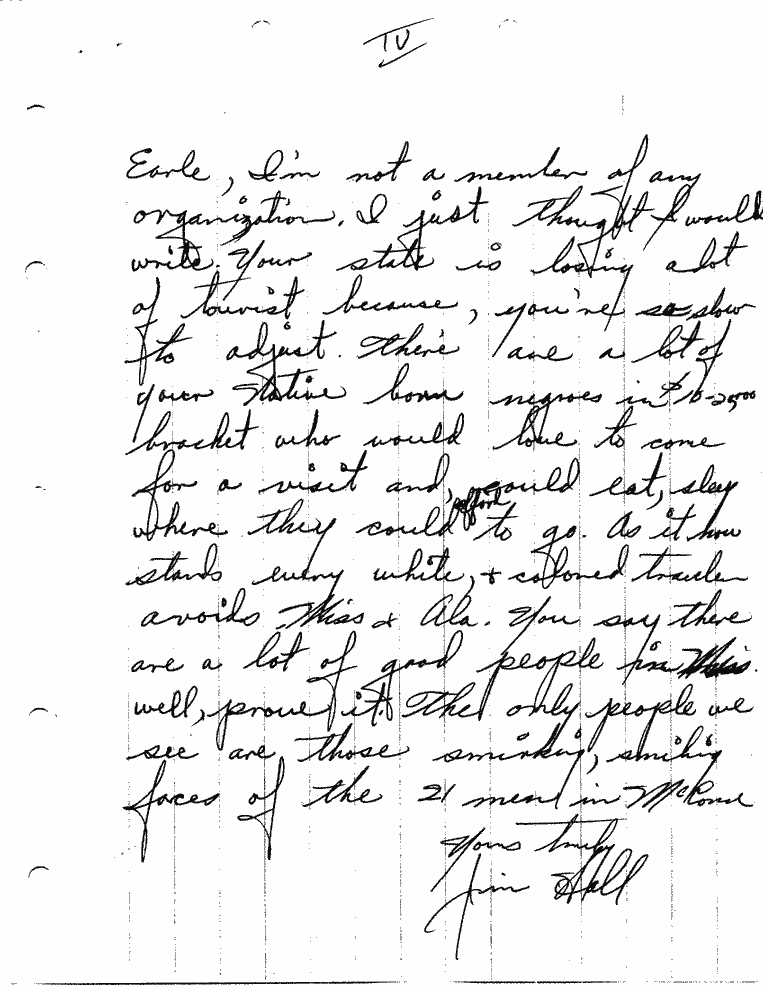 IV
Earle, I'm not a member of any
organization. I just thought I would
write. Your state is losing alot
of tourist because, you're so slow
to adjust. There are a lot of
your native born negroes in $10-25,000
bracket who would love to come
for a visit and, could eat, sleep
where they could afford to go. As it now
stands every white, & colored traveler
avoids Miss & Ala. You say there
are a lot of good people in Miss.
well, prove it. The only people we
see are those smirking, smiling
faces of the 21 men in McComb
Yours truly
Jim Hall